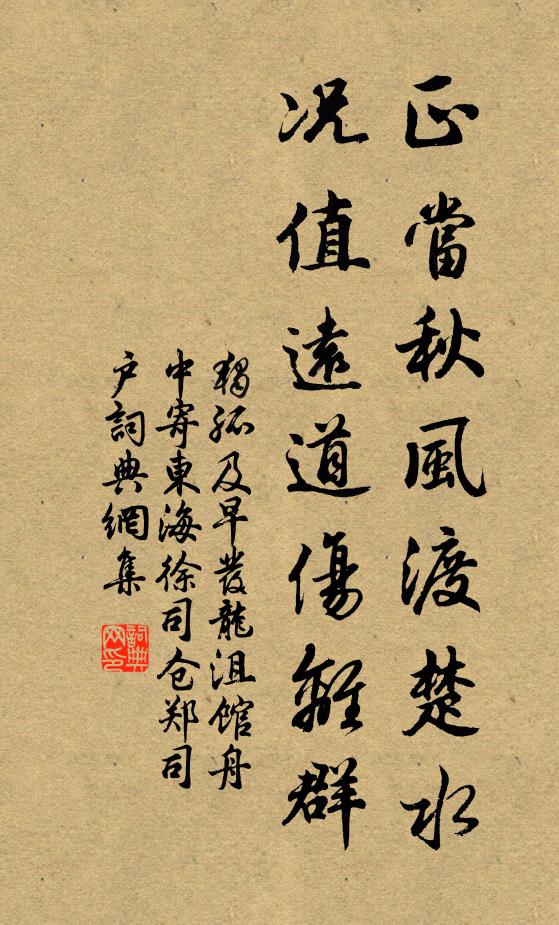 正當秋風渡楚水
况值遠道傷離群
獨孤及早發龍沮馆舟
中寄東海徐司仓郑司
户詞典網集
詞典
网印